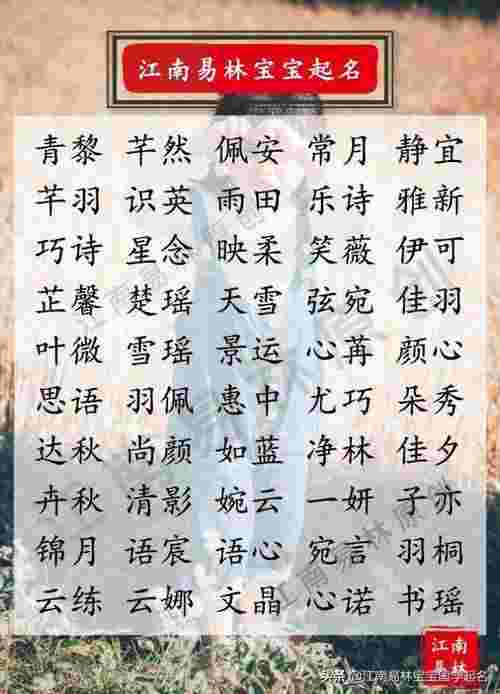 江南易林宝宝起名
青黎 芊然 佩安 常月 静宜
芊羽 识英 雨田 乐诗 雅新
巧诗 星念 映柔 笑薇 伊可
芷馨 楚瑶 天雪 弦宛 佳羽
叶微 雪瑶 景运 心苒 颜心
思语 羽佩 惠中 尤巧 朵秀
达秋 尚颜 如蓝 净林 佳夕
卉秋 清影 婉云 一妍 子亦
锦月 语宸 语心 宛言 羽桐
云练 云娜 文晶 心诺 书瑶
江南
易林
头条 @江南易林宝宝国学起名